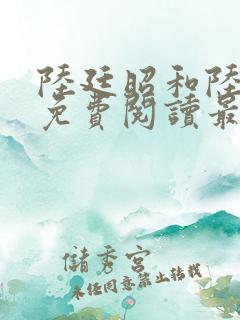 陸廷昭和陸
免費閱讀最
儲秀宮
未經同意禁止轉載